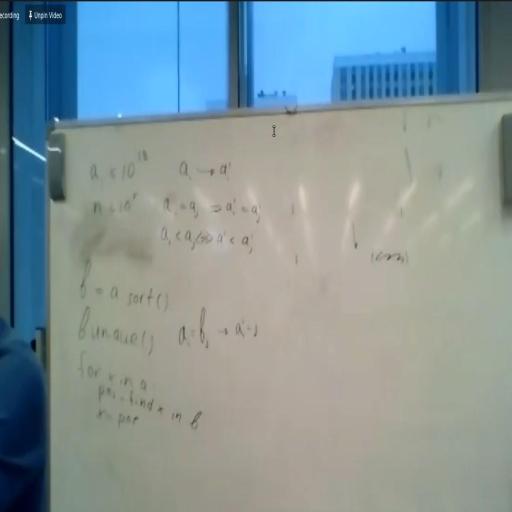 Unpin Video
a_i ≤ 10^18 a_i → a'_i
a_i = a_j ⇒ a'_i = a'_j
a_i < a_j ⇔ a'_i < a'_j
b = a sort()
b unique() a_i = b_j → a'_i = j
for x in a:
pos = find x in b
x = pos